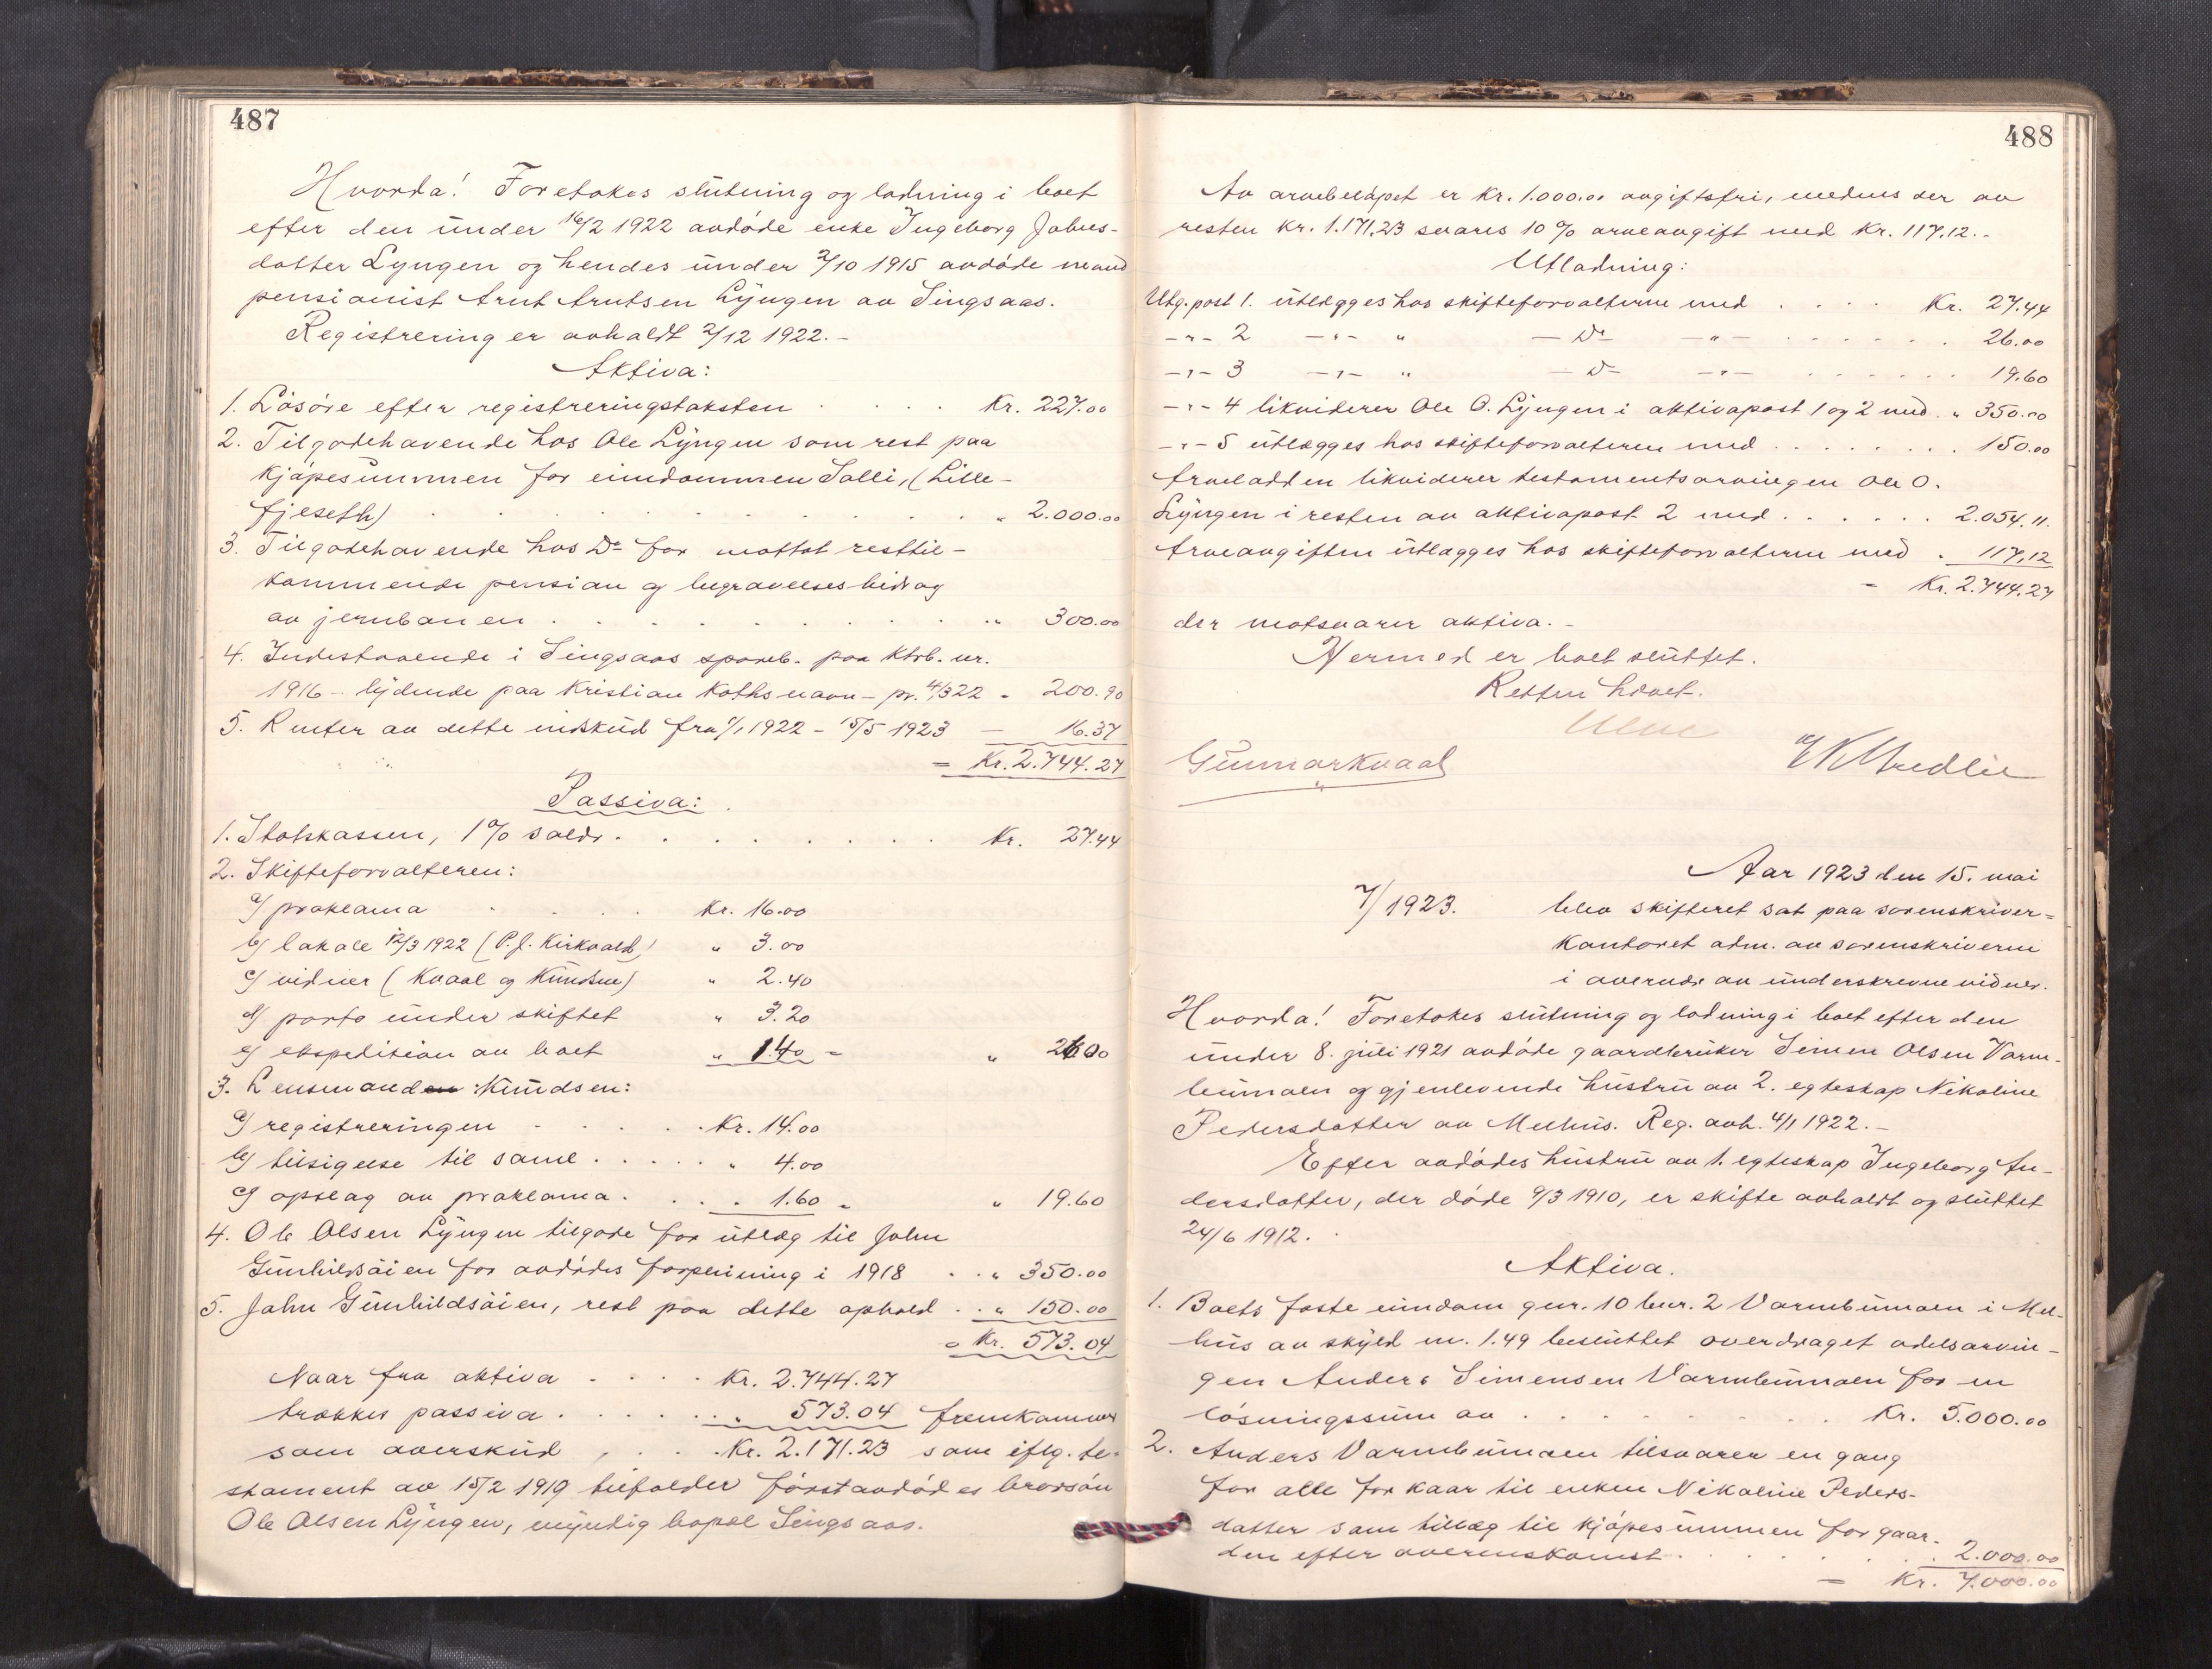 487
Hvorda! Foretokes slutning og lodning i boet
efter den under 16/2 1922 avdøde enke Ingeborg Johns-
datter Lyngen og hendes under 2/10 1915 avdøde mand
pensionist Arnt Arntsen Lyngen av Singsaas.
Registrering er avholdt 2/12 1922.-
Aktiva:
1. Løsøre efter registreringstaksten . . . . Kr. 227.00
2. Tilgodehavende hos Ole Lyngen som rest paa
kjøpesummen for eiendommen Solli, (Lille-
fjeseth) . . . . . . . . . . " 2.000.00
3. Tilgodehavende hos Do for mottat resttil-
kommende pension og begravelsesbidrag
av jernbanen . . . . . . . . . " 300.00
4. Indestaaende i Singsaas spareb. paa Ktrb. nr.
1916 - lydende paa Kristian Koths navn - pr. 4/3 22 " 200.90
5. Renter av dette indskud fra 1/1 1922 - 15/5 1923 — 16.37
= Kr. 2.744.27
Passiva:
1. Statskassen, 1% saldo . . . . . . . . Kr. 27.44
2. Skifteforvalteren:
a/ proklama . . . . Kr. 16.00
b/ lokale 12/3 1922 (P. J. Kirkvold) " 3.00
c/ vidner (Kvaal og Knudsen) " 2.40
d/ porto under skiftet " 3.20
e/ ekspedition av boet " 1.40 = " 26.00
3. Lensmanden Knudsen:
a/ registreringen . . . . . Kr. 14.00
b/ tilsigelse til saml . . . . . " 4.00
c/ opslag av proklama . . . . 1.60 = " 19.60
4. Ole Olsen Lyngen tilgode for utlæg til John
Gunhildsøien for avdødes forpleining i 1918 . . " 350.00
5. John Gunhildsøien, rest paa dette ophold . . " 150.00
= Kr. 573.04
Naar fra aktiva . . . . Kr. 2.744.27
trækkes passiva . . . . . . " 573.04 fremkommer
som overskud , . . . Kr. 2.171.23 som iflg. te-
stament av 15/2 1919 tilfalder førstavdødes brorsøn
Ole Olsen Lyngen, myndig bopæl Singsaas.
488
Av arvebeløpet er Kr. 1.000.00 avgiftsfri, medens der av
resten Kr. 1.171.23 svares 10% arveavgift med Kr. 117.12.-
Utlodning:
Utg. post 1. utlægges hos skifteforvalteren med . . . . Kr. 27.44
-"- 2 -"- " — Do — -"- . . . . . . 26.00
-"- 3 -"- " — Do — -"- . . . . . . 19.60
-"- 4 likviderer Ole O. Lyngen i aktivapost 1 og 2 med . " 350.00
-"- 5 utlægges hos skifteforvalteren med . . . . . . . 150.00
Arvelodden likviderer testamentsarvingen Ole O.
Lyngen i resten av aktivapost 2 med . . . . . . 2.054.11.
Arveavgiften utlægges hos skifteforvalteren med . 117.12
= Kr. 2.744.27
der motsvarer aktiva.-
Hermed er boet sluttet.
Retten hævet.
Gunnar Kvaal
7/1923.
Aar 1923 den 15. mai
blev skifteret sat paa sorenskriver=
kontoret adm. av sorenskriveren
i overvær av underskrevne vidner.
Hvorda! Foretokes slutning og lodning i boet efter den
under 8. juli 1921 avdøde gaardbruker Simen Olsen Varm-
bumoen og gjenlevende hustru av 2. egteskap Nikoline
Pedersdatter av Melhus. Reg. avh. 4/1 1922.-
Efter avdødes hustru av 1. egteskap Ingeborg An-
dersdatter, der døde 9/3 1910, er skifte avholdt og sluttet
24/6 1912.
Aktiva.
1. Boets faste eiendom gnr. 10 bnr. 2 Varmbumoen i Mel-
hus av skyld m. 1.49 besluttet overdraget odelsarvin-
gen Anders Simensen Varmbumoen for en
løsningssum av . . . . . . . . Kr. 5.000.00
2. Anders Varmbumoen tilsvarer en gang
for alle for kaar til enken Nikoline Peders-
datter som tillæg til kjøpesummen for gaar-
den efter overenskomst . . . . . . 2.000.00
= Kr. 7.000.00